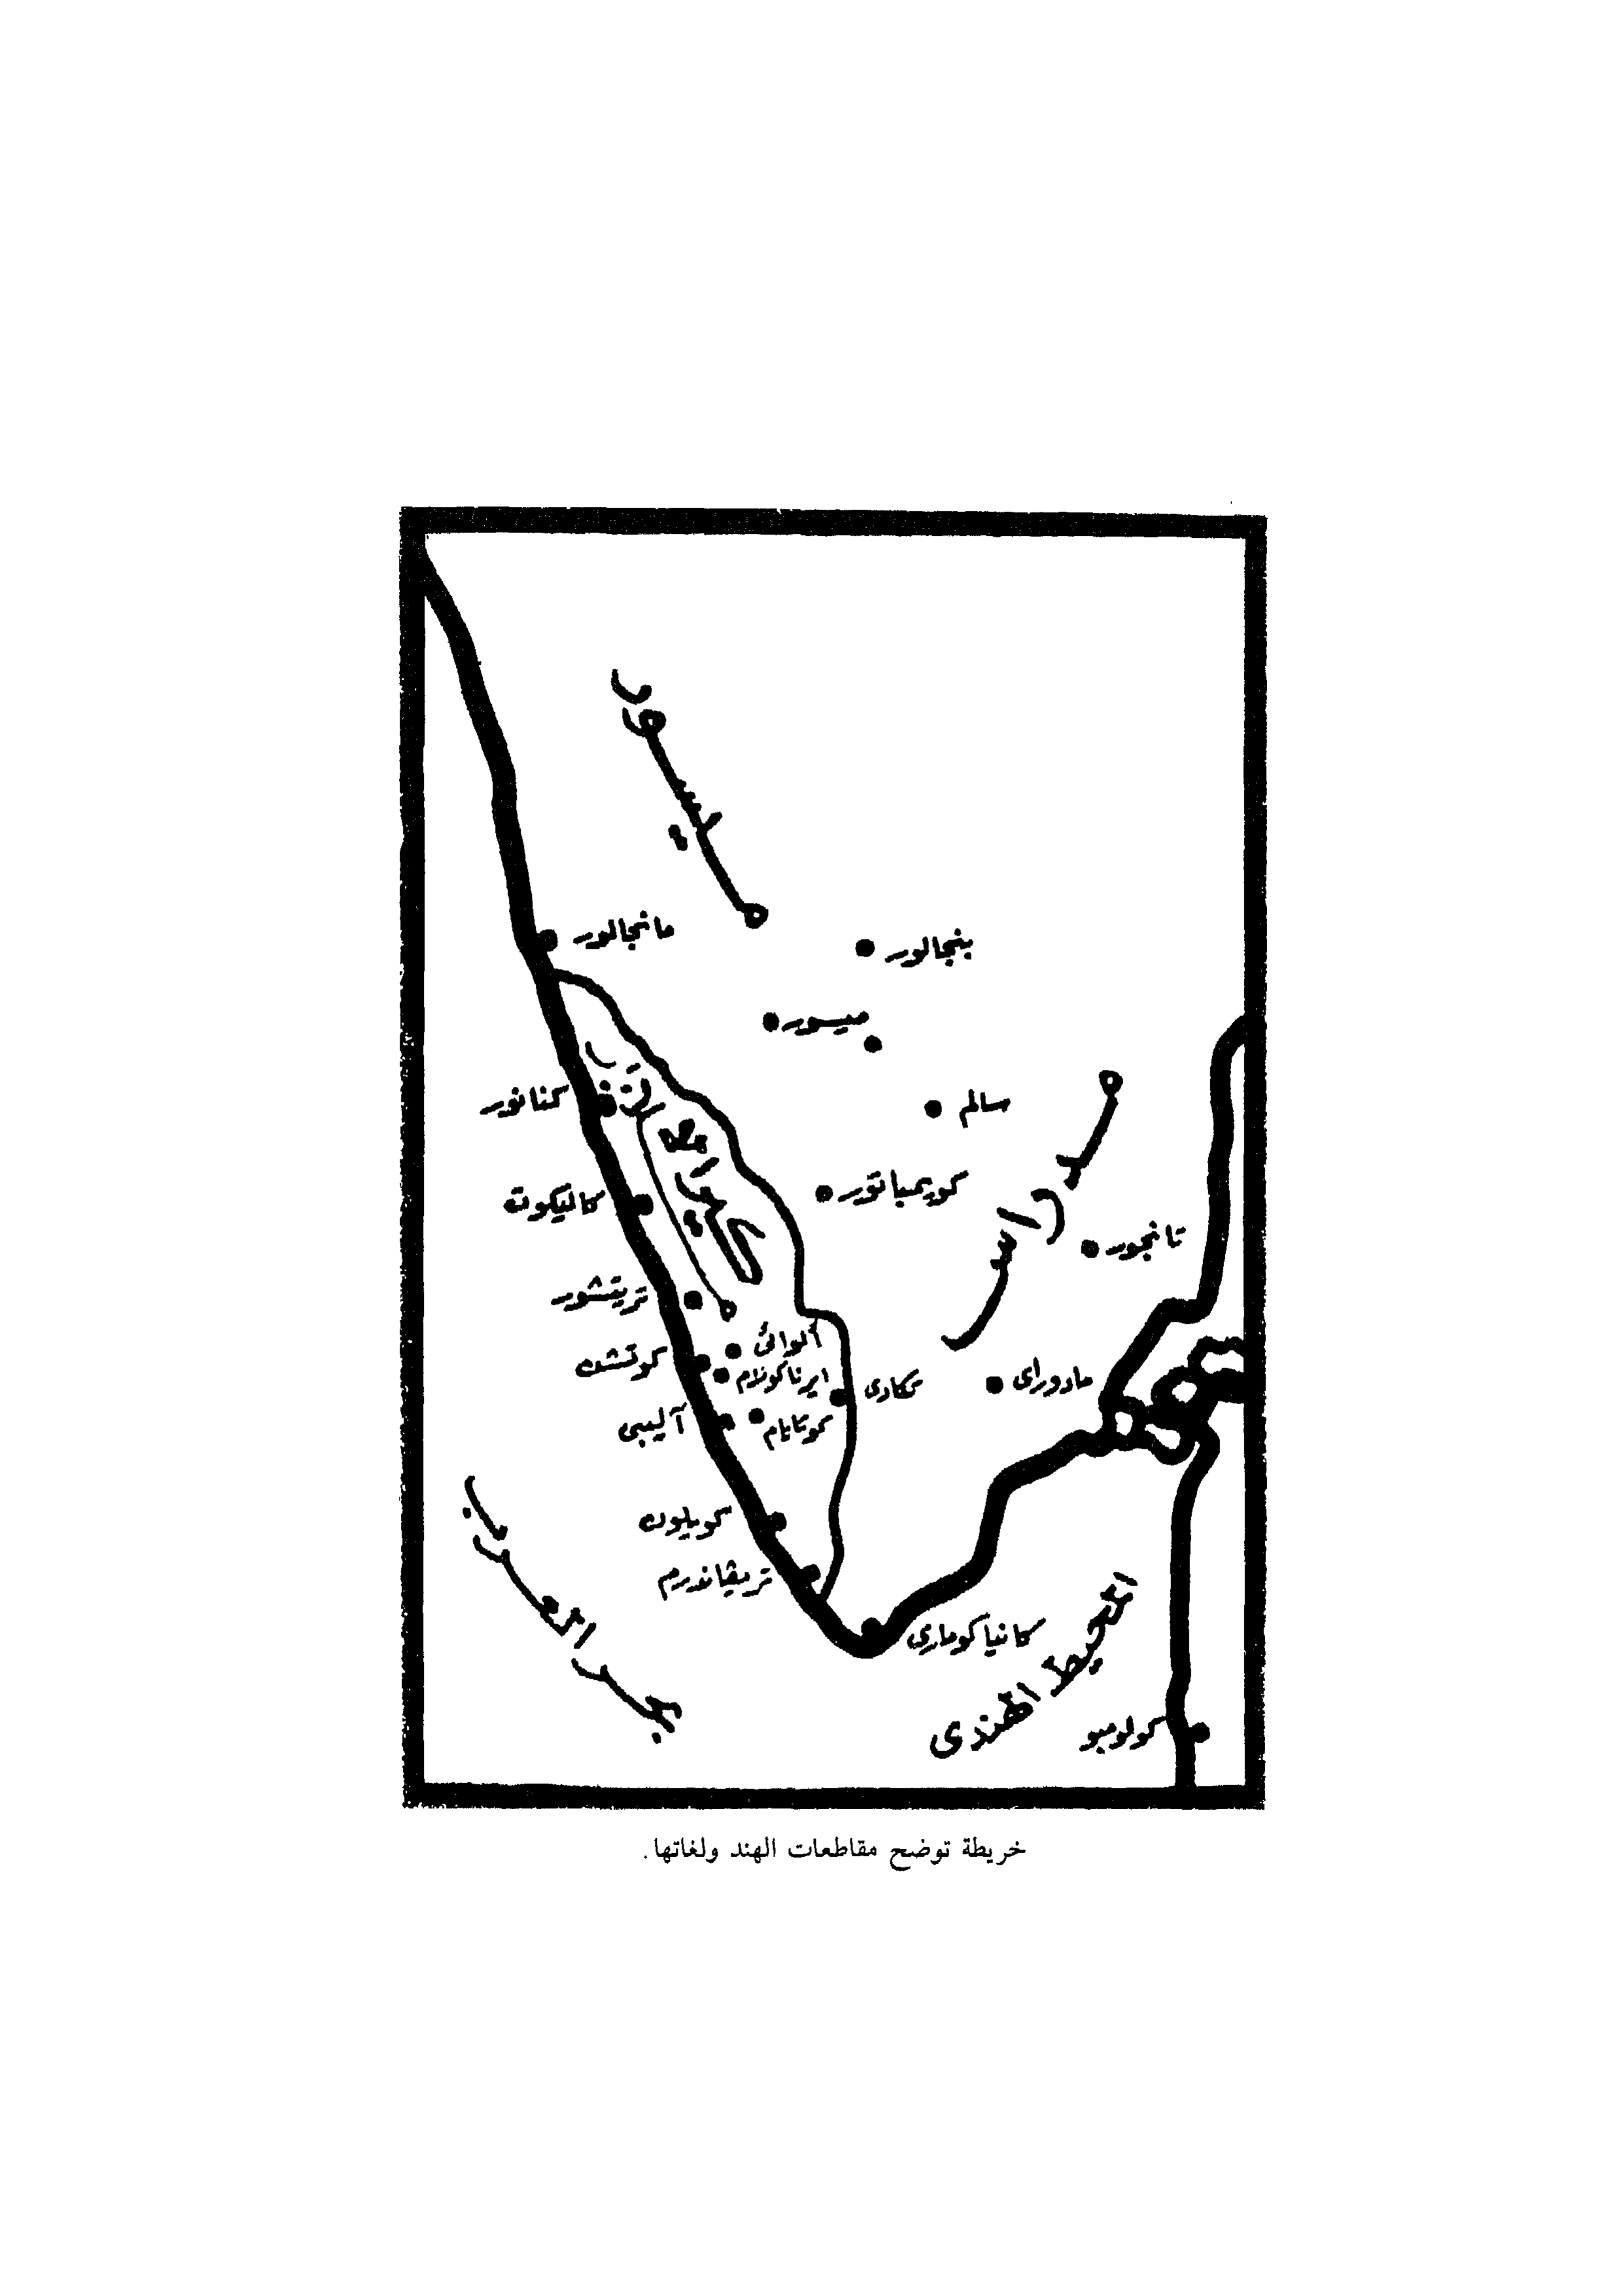 ميسور
مانجالور
بنجالور
ميسور
كنانور
سالم
مدراس
كاليكوت
كويمباتور
تانجور
تريتشور
ألوائى
كوتشن
ايرناكولام
مادوراى
آليبى
كوتايام
كويلون
تريڤاندرم
كانياكومارى
بحر العرب
المحيط الهندى
كولومبو
خريطة توضح مقاطعات الهند ولغاتها.